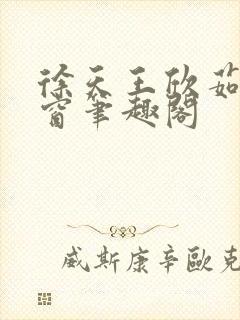 徐天王欣茹
窗筆趣閣
威斯康辛歐克